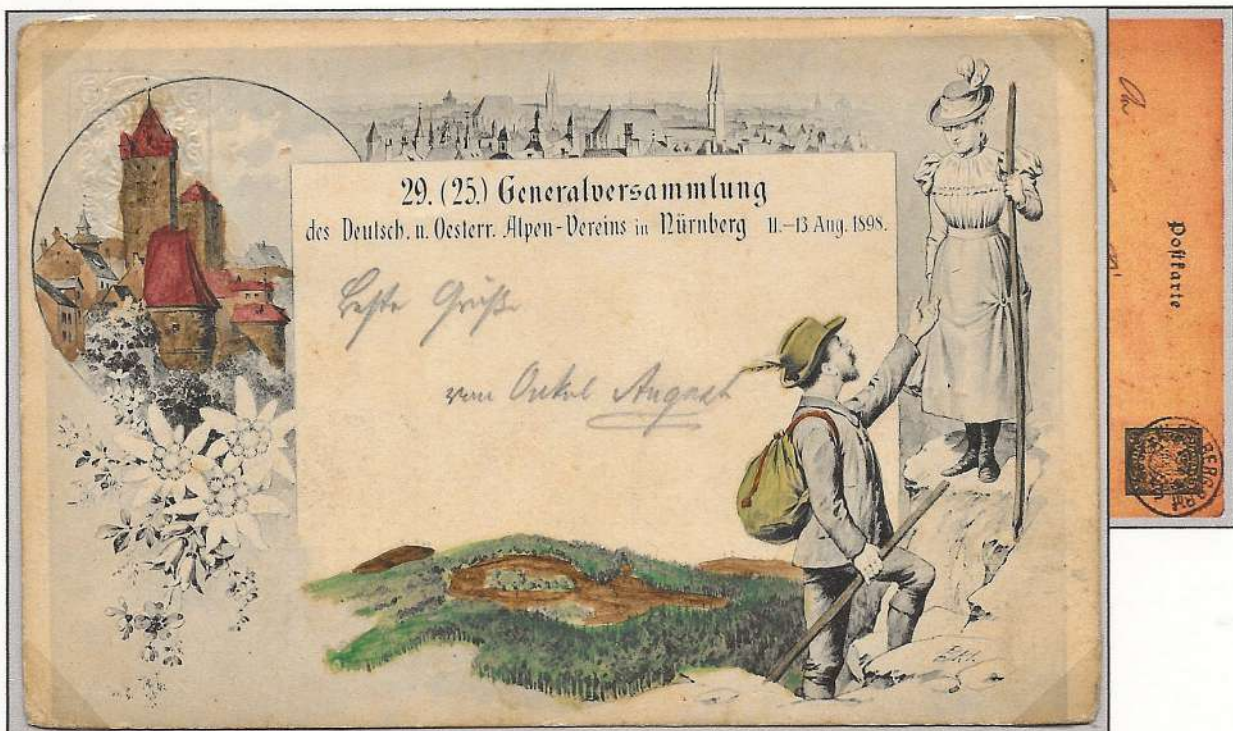 29. (25.) Generalversammlung
des Deutsch. u. Oesterr. Alpen-Vereins in Nürnberg 11.–13 Aug. 1898.
Beste Grüße
von Onkel August
An
Postkarte.